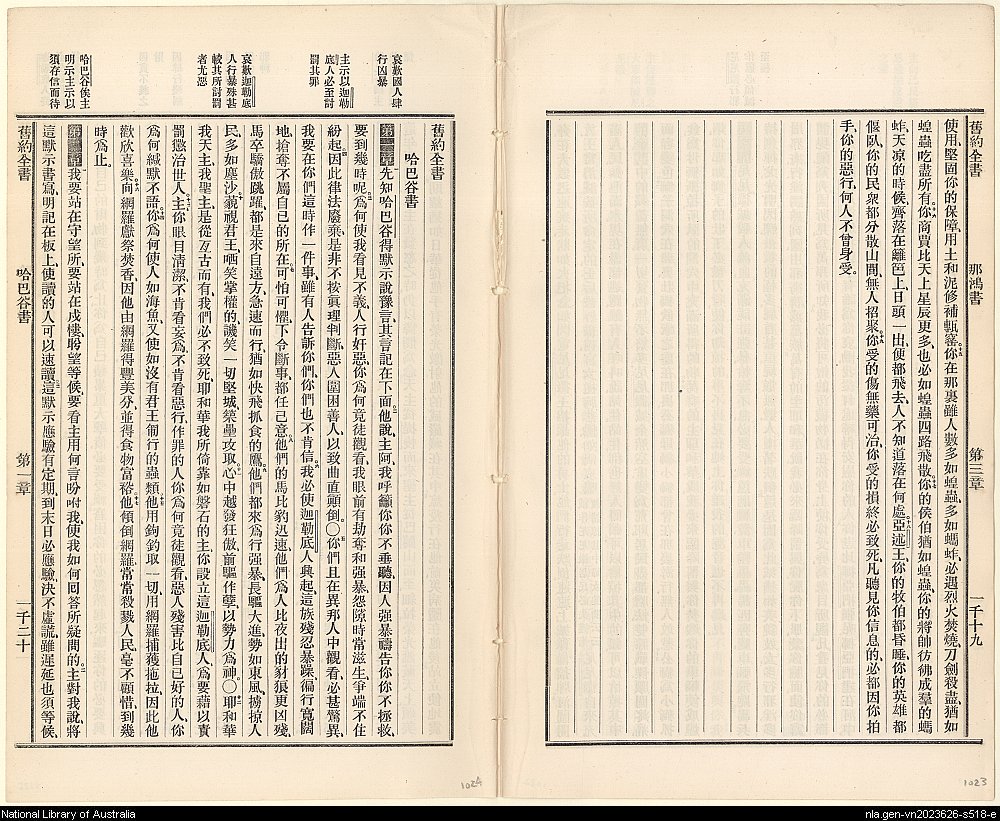 舊約全書 那鴻書 第三章 一千十九
使用、堅固你的保障、用土和泥修補甎窰、你在那裏雖人數多如蝗蟲、多如螞蚱、必遇烈火焚燒、刀劍殺盡、猶如
蝗蟲吃盡所有、你商賈比天上星辰更多、也必如蝗蟲四路飛散、你的侯伯猶如蝗蟲、你的將帥彷彿成羣的螞
蚱、天凉的時候、齊落在籬笆上、日頭一出、便都飛去、人不知道落在何處、亞述王、你的牧伯都昏睡、你的英雄都
偃臥、你的民衆都分散山間、無人招聚、你受的傷無藥可治、你受的損終必致死、凡聽見你信息的、必都因你拍
手、你的惡行、何人不曾身受。
1023
舊約全書
哈巴谷書
哀歎國人肆
行凶暴
第一章先知哈巴谷得默示說豫言、其言記在下面、他說、主阿、我呼籲你、你不垂聽、因人強暴禱告你、你不拯救、
要到幾時呢、爲何使我看見不義、人行奸惡、你爲何竟徒觀看、我眼前有劫奪和强暴、怨隙時常滋生、爭端不住
主示以迦勒
底人必至討
罰其罪
紛起、因此律法廢棄、是非不按眞理判斷、惡人圍困善人、以致曲直顚倒。〇你們且在異邦人中觀看、必甚驚異、
我要在你們這時作一件事、雖有人告訴你們、你們也不肯信、我必使迦勒底人興起、這族殘忍暴躁、徧行寬闊
地、搶奪不屬自己的所在、可怕可懼、下令斷事、都任己意、他們的馬比豹迅速、他們爲人比夜出的豺狼更凶殘、
哀歎迦勒底
人行暴殊甚
較其所討罰
者尤惡
馬卒驕傲跳躍、都是來自遠方、急速而行、猶如快飛抓食的鷹、他們都來爲行强暴、長驅大進、勢如東風、擄掠人
民、多如塵沙、藐視君王、哂笑掌權的、譏笑一切堅城、築壘攻取、心中越發狂傲、前驅作孽、以勢力爲神。〇耶和華
我天主、我聖主、是從亙古而有、我們必不致死、耶和華我所倚靠如磐石的主、你設立這迦勒底人、爲要藉以責
罰懲治世人、主你眼目清潔、不肯看妄爲、不肯看惡行、作罪的人、你爲何竟徒觀看、惡人殘害比自己好的人、你
爲何緘默不語、你爲何使人如海魚、又使如沒有君王匍行的蟲類、他用鉤釣取一切、用網羅捕獲拖拉、因此他
歡欣喜樂、向網羅獻祭焚香、因他由網羅得豐美分、並得食物富裕、他傾倒網羅、當常殺戮人民、毫不顧惜、到幾
時爲止。
哈巴谷俟主
明示主示以
須存信而待
第二章我要站在守望所、要站在戍樓、聆望等候、要看主用何言吩咐我、使我如何回答所疑問的、主對我說、將
這默示書寫、明記在板上、使讀的人可以速讀、這默示應驗有定期、到末日必應驗、決不虛謊、雖遲延、也須等候、
舊約全書 哈巴谷書 第一章 一千二十
1024
National Library of Australia
nla.gen-vn2023626-s518-e